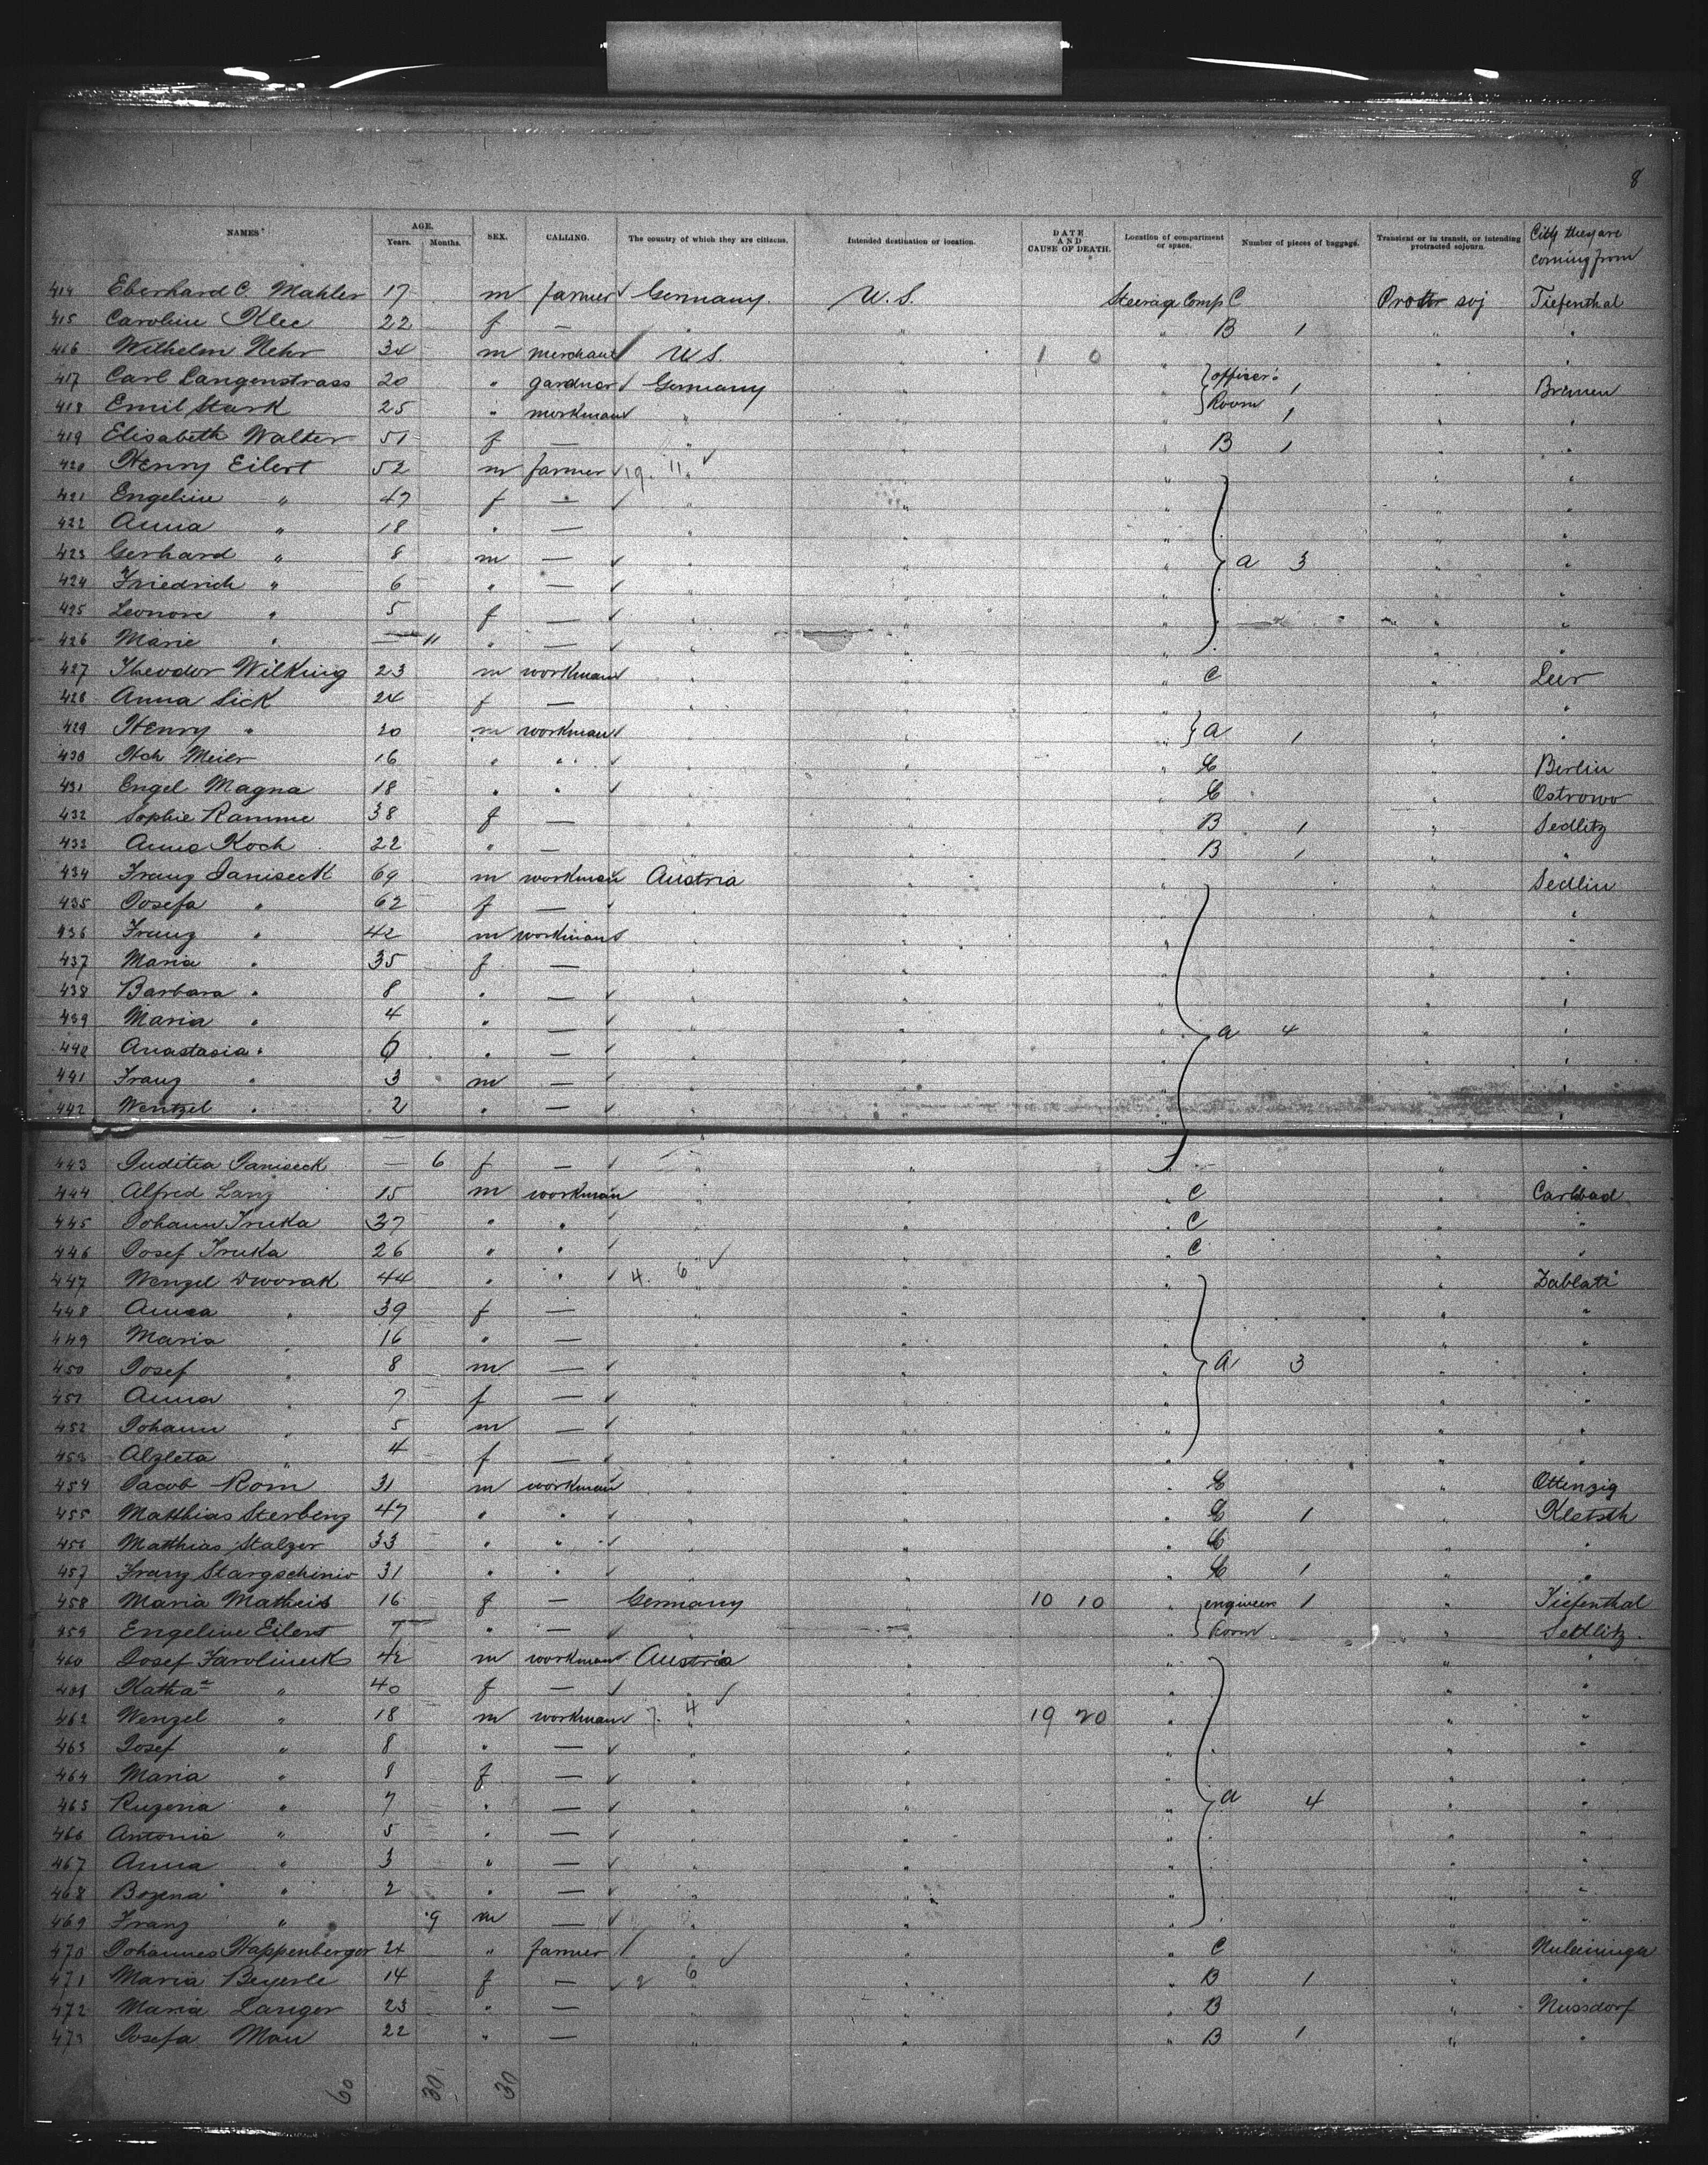 8
NAMES AGE. Years. Months. SEX. CALLING. The country of which they are citizens. Intended destination or location. DATE AND CAUSE OF DEATH. Location of compartment or space. Number of pieces of baggage. Transient or in transit, or intending protracted sojourn. City they are coming from
414 Eberhard C. Mahler 17 m farmer Germany U.S. Steerage Comp C soj Tiefenthal
415 Caroline Klee 22 f — " " B 1 " "
416 Wilhelm Nehr 34 m merchant U.S. " 1 0 " "
417 Carl Langenstrass 20 " gardner Germany " officer's 1 " Bremen
418 Emil Stark 25 " workman " " Room 1 " "
419 Elisabeth Walter 51 f — " " B 1 " "
420 Henry Eilert 52 m farmer 19. 11 " " " "
421 Engeline " 47 f — " " " "
422 Anna " 18 " — " " " "
423 Gerhard " 8 m — " " a 3 " "
424 Friedrich " 6 " — " " " "
425 Leonore " 5 f — " " " "
426 Marie " — 11 " — " " " "
427 Theodor Wilking 23 m workman " " C " Leer
428 Anna Sick 24 f — " " " "
429 Henry " 20 m workman " " a 1 " "
430 Hch Meier 16 " " " " C " Berlin
431 Engel Magna 18 " " " " C " Ostrowo
432 Sophie Ramme 38 f — " " B 1 " Sedlitz
433 Anna Koch 22 " — " " B 1 " "
434 Franz Janiseck 69 m workman Austria " " Sedlin
435 Josefa " 62 f — " " " "
436 Franz " 42 m workman " " " "
437 Maria " 35 f — " " " "
438 Barbara " 8 " — " " " "
439 Maria " 4 " — " " a 4 " "
440 Anastasia " 6 " — " " " "
441 Franz " 3 m — " " " "
442 Wentzel " 2 " — " " "
443 Janiseck — 6 f — " " " "
444 Alfred Lanz 15 m workman " " C " Carlsbad
445 Johann Truka 37 " " " " C " "
446 Josef Truka 26 " " " " C " "
447 Wenzel Dworak 44 " " 4. 6 " " " Zablati
448 Anna " 39 f — " " " "
449 Maria " 16 " — " " " "
450 Josef " 8 m — " " a 3 " "
451 Anna " 7 f — " " " "
452 Johann " 5 m — " " " "
453 Alzleta " 4 f — " " " "
454 Jacob Rom 31 m workman " " C " Ottenzig
455 Matthias Sterbenz 47 " " " " C 1 " Kletsch
456 Matthias Stalzer 33 " " " " C " "
457 Franz 31 " " " " C 1 " "
458 Maria Matheis 16 f — Germany " 10 10 engineers 1 " Tiefenthal
459 Engeline Eilert 7 " — " " Room " Sedlitz
460 Josef Karolineck 42 m workman Austria " " "
461 Katha " 40 f — " " " "
462 Wenzel " 18 m workman 7. 4 " 19 20 " "
463 Josef " 8 " — " " " "
464 Maria " 8 f — " " " "
465 Ruzena " 7 " — " " a 4 " "
466 Antonia " 5 " — " " " "
467 Anna " 3 " — " " " "
468 Bozena " 2 " — " " " "
469 Franz " 9 m — " " " "
470 Johannes Happenberger 24 " farmer " " C "
471 Maria Beyerle 14 f — 2 6 " B 1 " "
472 Maria Langer 23 " — " " B " Nussdorf
473 Josefa Mau 22 " — " " B 1 " "
60 30 30